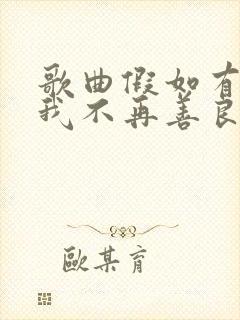 歌曲假如有
我不再善良
歐某育